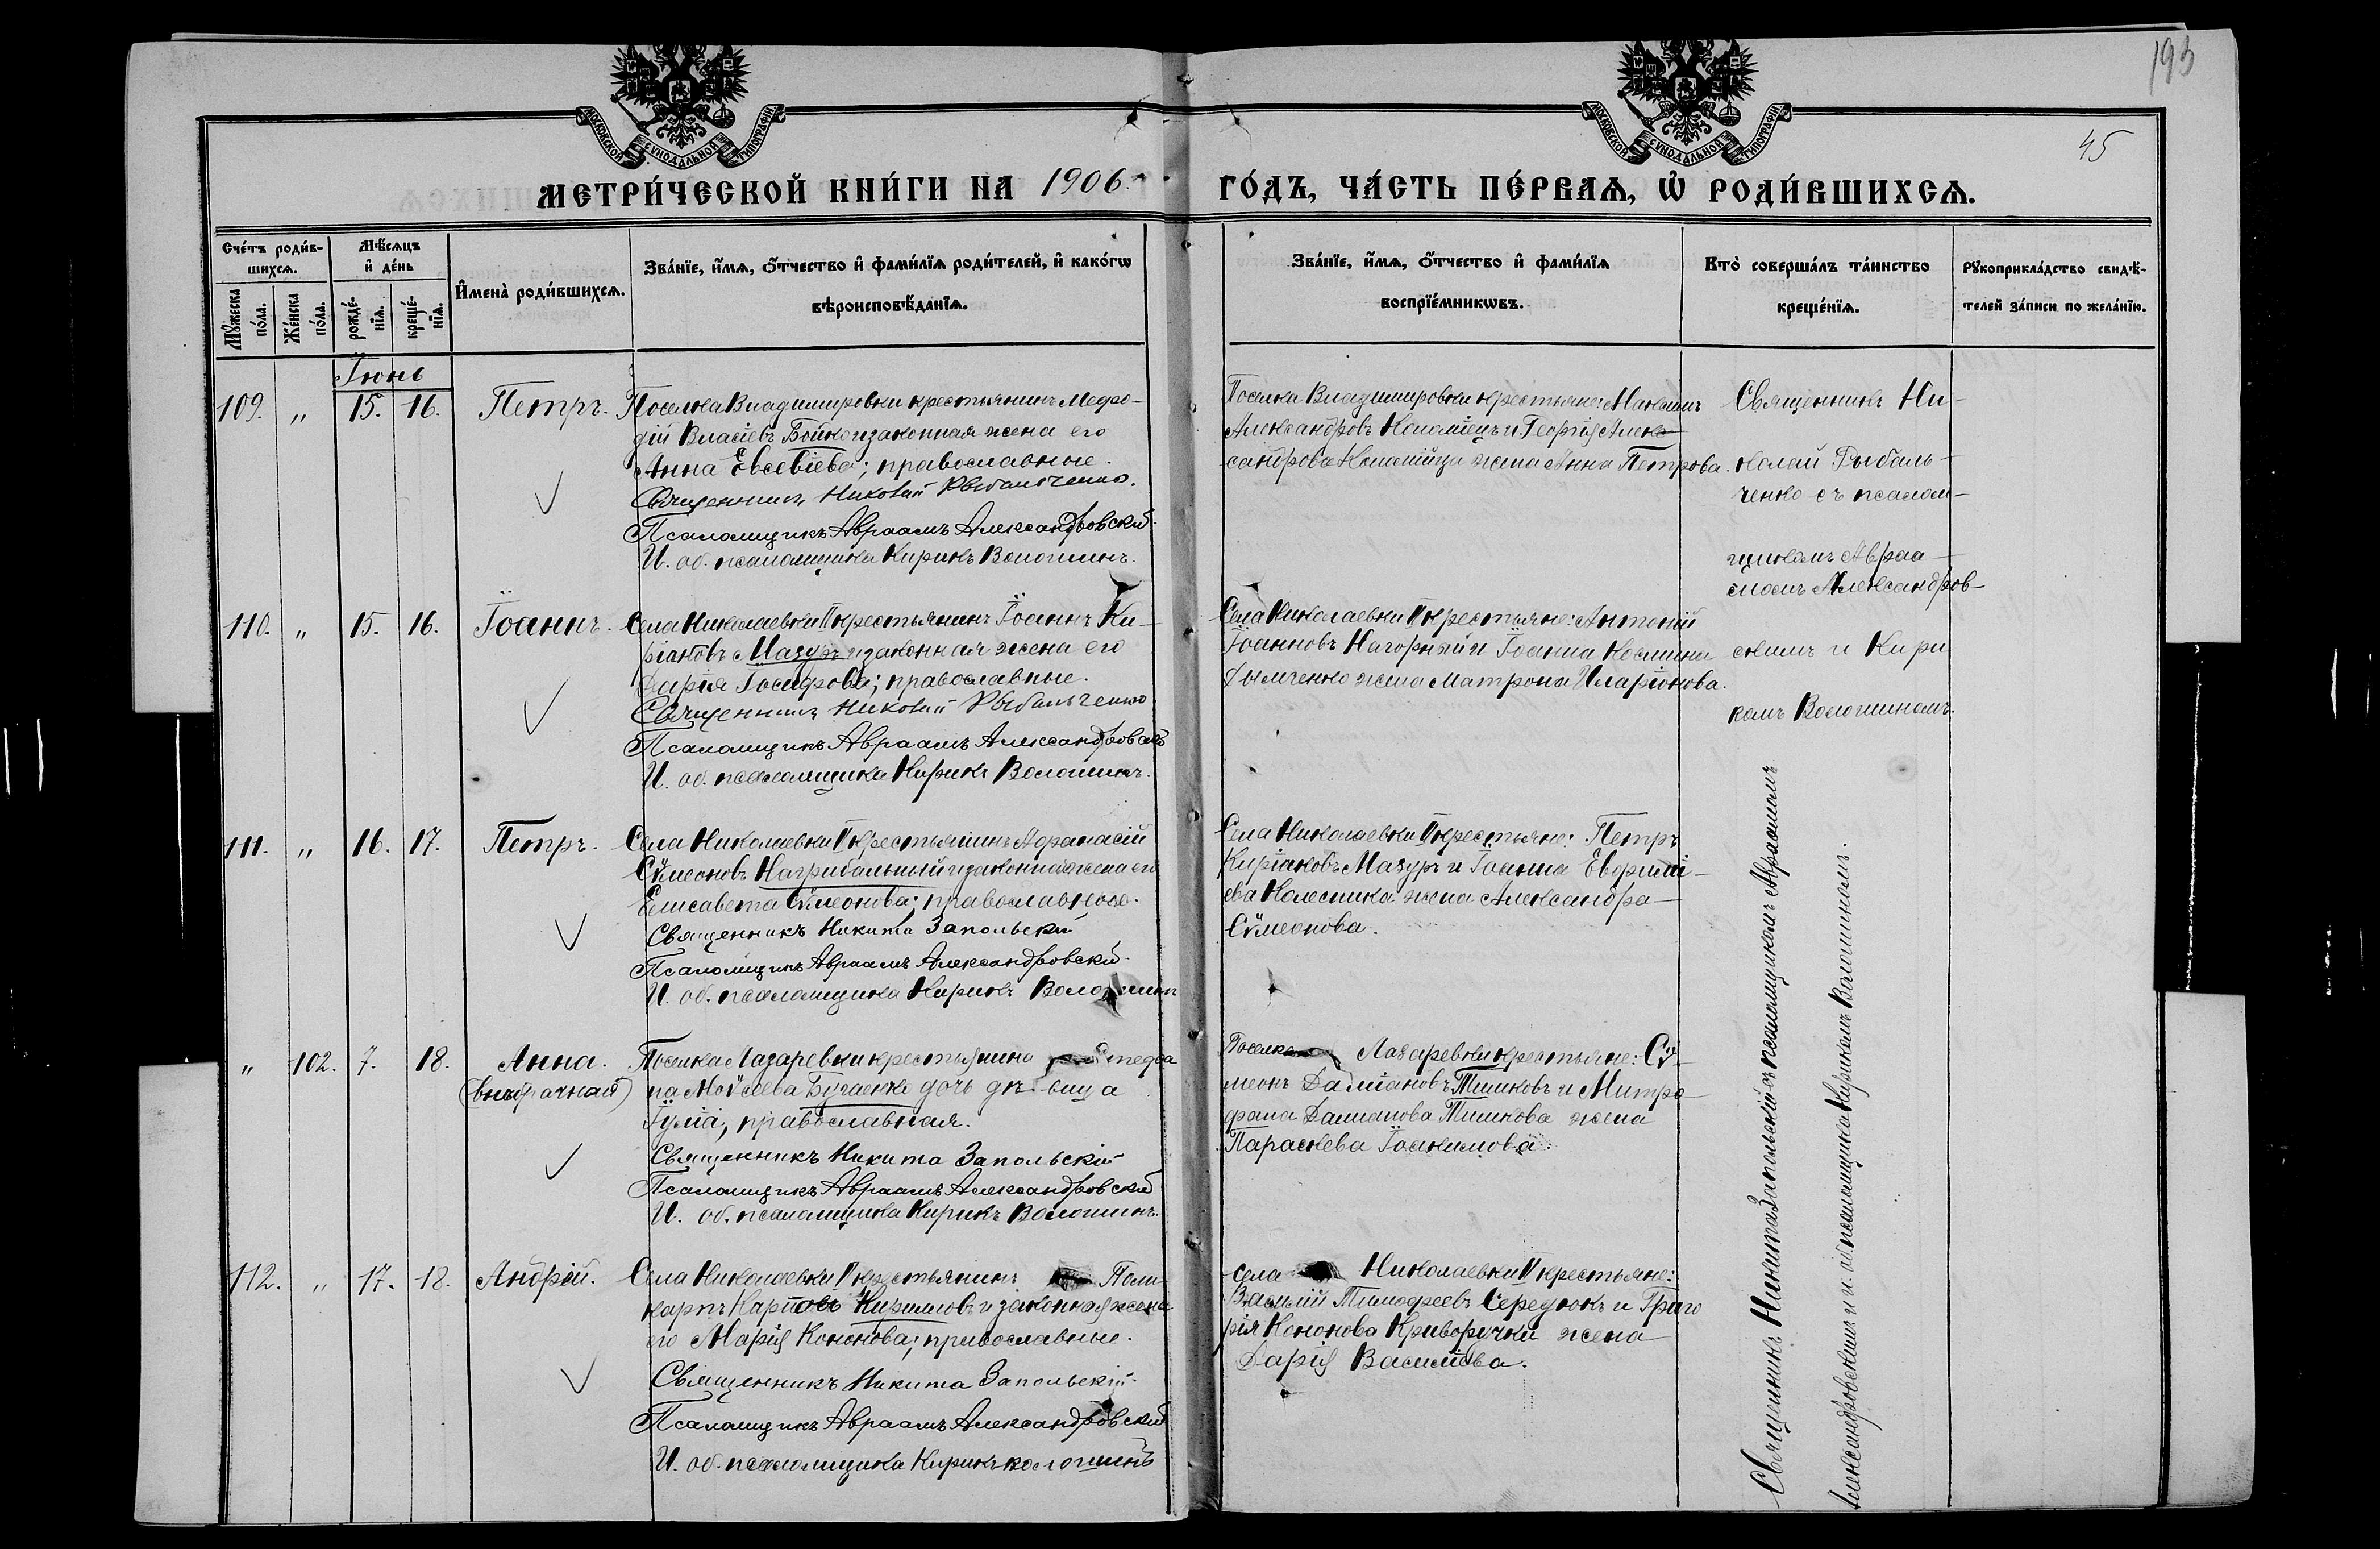 193
45
МОСКОВСКОЙ СѴНОДАЛЬНОЙ ТИПОГРАФІИ
МОСКОВСКОЙ СѴНОДАЛЬНОЙ ТИПОГРАФІИ
МЕТРИ́ЧЕСКОЙ КНИ́ГИ НА 1906. ГО́ДЪ, ЧА́СТЬ ПЕ́РВАѦ, Ѡ҆ РОДИ́ВШИХСѦ.
Сче́тъ роди́в-
шихсѧ.
Мѣ́сѧцъ
и҆ де́нь
И҆мена̀ роди́вшихсѧ.
Зва́нїе, и҆́мѧ, ѻ҆́тчество и҆ фами́лїѧ роди́телей, и҆ како́гѡ
вѣроисповѣ́данїѧ.
Мꙋ́жеска
по́ла.
Же́нска
по́ла.
рожде́-
нїѧ.
креще́-
нїѧ.
Зва́нїе, и҆́мѧ, ѻ҆́тчество и҆ фами́лїѧ
воспрїе́мникѡвъ.
Кто̀ соверша́лъ та́инство
креще́нїѧ.
Рꙋкоприкла́дство свидѣ́-
телей за́писи по жела́нїю.
Іюнь
109. „ 15. 16. Петръ. Поселка Владимировки крестьянинъ Мефо-
дій Власіевъ Бойко и законная жена его
Анна Евсевіева; православные.
Священникъ Николай Рыбальченко.
Псаломщикъ Авраамъ Александровскій.
И. об. псаломщика Кирикъ Волошинъ.
Поселка Владимировки крестьяне: Максимъ
Александровъ Коломіецъ и Георгія Алек-
сандрова Коломійца жена Анна Петрова.
Священникъ Ни-
колай Рыбаль-
ченко съ псалом-
щикомъ Авраа-
момъ Александров-
скимъ и Кири
комъ Волошинымъ.
110. „ 15. 16. Іоаннъ. Села Николаевки II крестьянинъ Іоаннъ Ки-
ріаковъ Мазуръ и законная жена его
Дарія Іосифова; православные.
Священникъ Николай Рыбальченко
Псаломщикъ Авраамъ Александровскій
И. об. псаломщика Кирикъ Волошинъ.
Села Николаевки II крестьяне: Антоній
Іоанновъ Нагорный и Іоанна Космина
жена Матрона Иларіонова.
111. „ 16. 17. Петръ. Села Николаевки II крестьянинъ Афанасій
Сѵмеоновъ Нагрибальный и законная жена его
Елисавета Сѵмеонова; православные.
Священникъ Никита Запольскій
Псаломщикъ Авраамъ Александровскій.
И. об. псаломщика Кирикъ Волошинъ
Села Николаевки II крестьяне: Петръ
Киріаковъ Мазуръ и Іоанна Евфимі-
ева Колесника жена Александра
Сѵмеонова.
„ 102. 7. 18. Анна.
(внѣбрачная)
Поселка Лазаревки крестьянина Стефа
на Моѵсеева Бугаенко дочь дѣвица
Іулія, православная.
Священникъ Никита Запольскій
Псаломщикъ Авраамъ Александровскій
И. об. псаломщика Кирикъ Волошинъ.
Поселка Лазаревки крестьяне: Сѵ-
меонъ Даміановъ Тишковъ и Митро-
фана Даміанова Тишкова жена
Параскева Іоакимова.
112. „ 17. 18. Андрей. Села Николаевки II крестьянинъ Поли
карпъ Карповъ Кирилловъ и законная жена
его Марія Кононова; православные.
Священникъ Никита Запольскій.
Псаломщикъ Авраамъ Александровскій
И. об. псаломщика Кирикъ Волошинъ
села Николаевки II крестьяне:
Василій Тимофеевъ Середюкъ и Григо
рія Кононова Криворучки жена
Дарія Василіева.
Священникъ Никита Запольскій съ псаломщикомъ Авраамомъ
Александровскимъ и и. об. псаломщика Кирикомъ Волошиномъ.